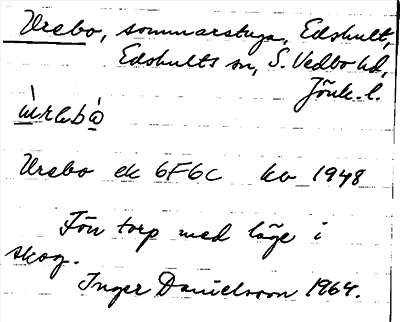 Uvebo, sommarstuga, Edshult,
Edshults sn, S. Vedbo hd,
Jönk. l.
Uvebo ek 6F6c ko 1948
Förr torp med läge i
skog.
Inger Danielsson 1964.